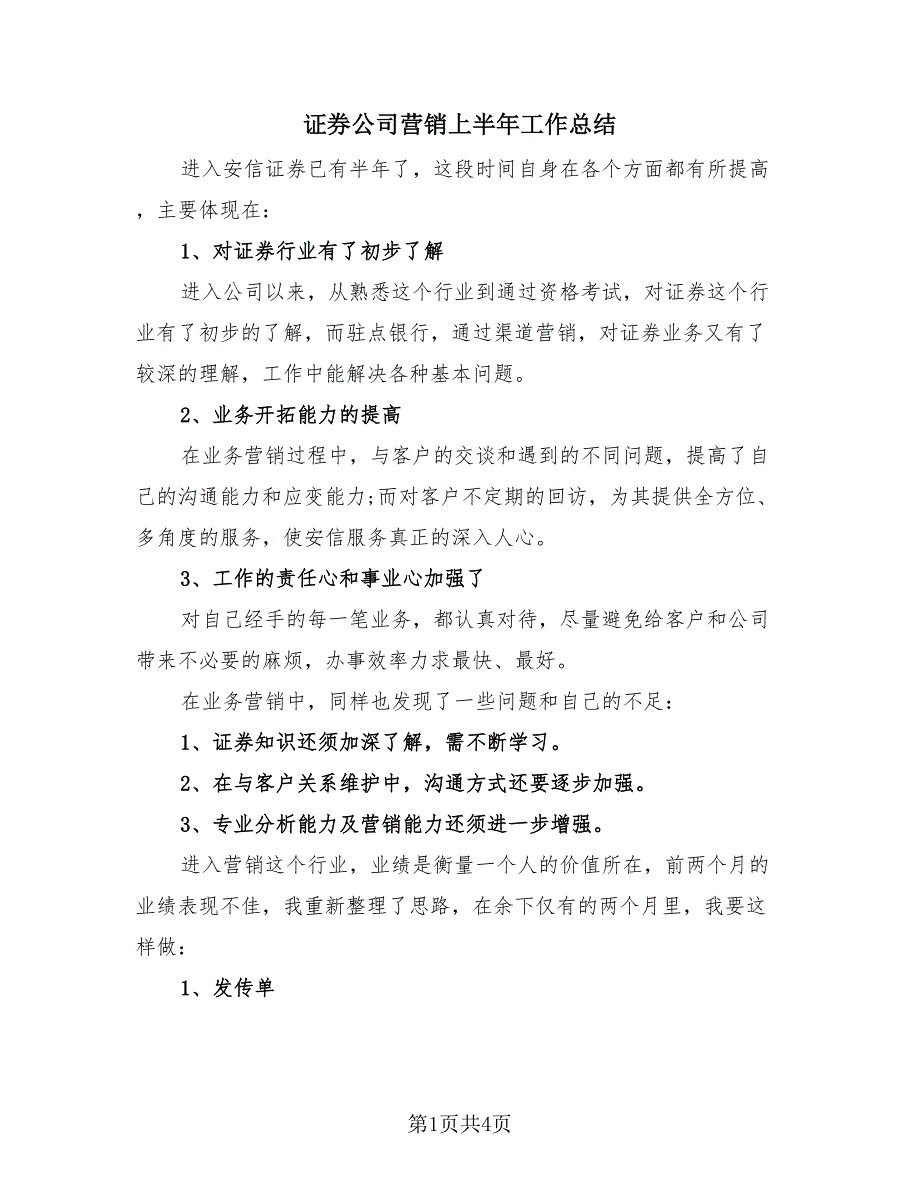 证券公司营销上半年工作总结
进入安信证券已有半年了，这段时间自身在各个方面都有所提高
，主要体现在：
1、对证券行业有了初步了解
进入公司以来，从熟悉这个行业到通过资格考试，对证券这个行
业有了初步的了解，而驻点银行，通过渠道营销，对证券业务又有了
较深的理解，工作中能解决各种基本问题。
2、业务开拓能力的提高
在业务营销过程中，与客户的交谈和遇到的不同问题，提高了自
己的沟通能力和应变能力;而对客户不定期的回访，为其提供全方位、
多角度的服务，使安信服务真正的深入人心。
3、工作的责任心和事业心加强了
对自己经手的每一笔业务，都认真对待，尽量避免给客户和公司
带来不必要的麻烦，办事效率力求最快、最好。
在业务营销中，同样也发现了一些问题和自己的不足：
1、证券知识还须加深了解，需不断学习。
2、在与客户关系维护中，沟通方式还要逐步加强。
3、专业分析能力及营销能力还须进一步增强。
进入营销这个行业，业绩是衡量一个人的价值所在，前两个月的
业绩表现不佳，我重新整理了思路，在余下仅有的两个月里，我要这
样做：
1、发传单
第1页共4页